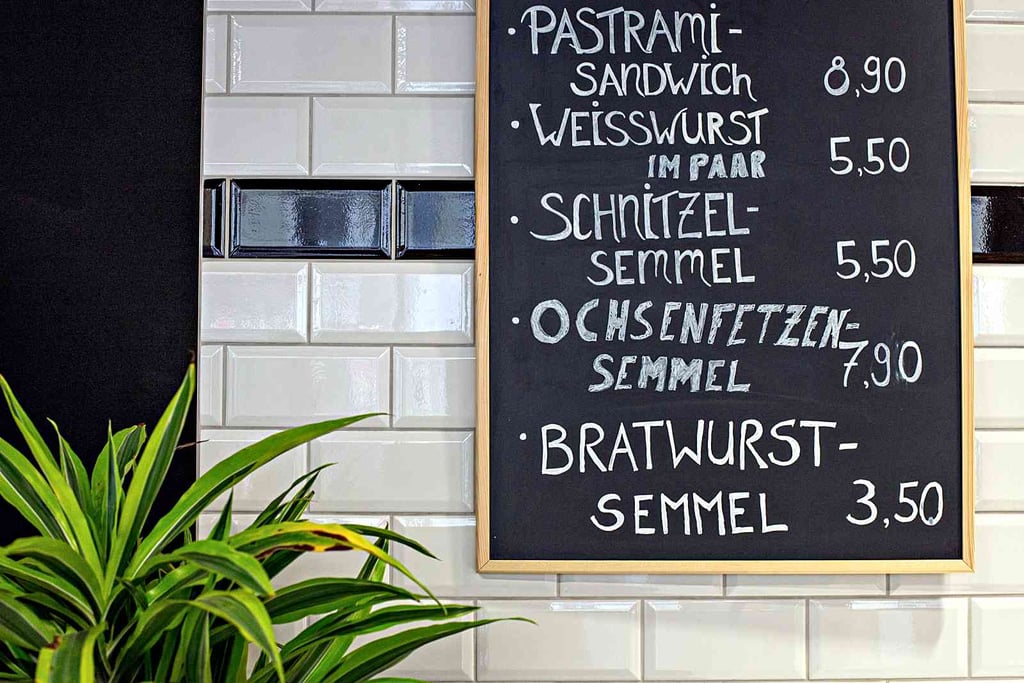 · PASTRAMI-
SANDWICH 8,90
· WEISSWURST
IM PAAR 5,50
· SCHNITZEL-
SEMMEL 5,50
· OCHSENFETZEN-
SEMMEL 7,90
· BRATWURST-
SEMMEL 3,50